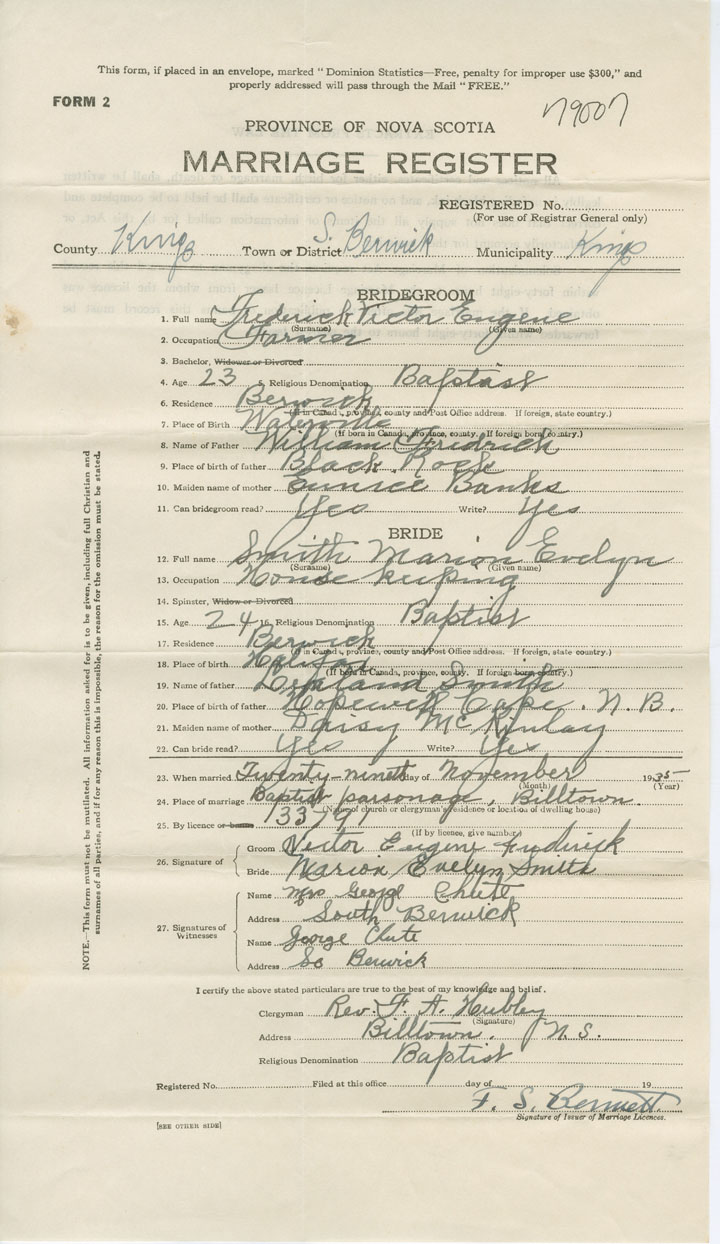 This form, if placed in an envelope, marked "Dominion Statistics—Free, penalty for improper use $300," and
properly addressed will pass through the Mail "FREE."
FORM 2
79007
PROVINCE OF NOVA SCOTIA
MARRIAGE REGISTER
REGISTERED No.
(For use of Registrar General only)
County Kings Town or District S. Berwick Municipality Kings
BRIDEGROOM
1. Full name Frederick Victor Eugene
(Surname) (Given name)
2. Occupation Farmer
3. Bachelor, Widower or Divorced
4. Age 23 5. Religious Denomination Baptist
6. Residence Berwick
(If in Canada, province, county and Post Office address. If foreign, state country.)
7. Place of Birth Waterville
(If born in Canada, province, county. If foreign born country.)
8. Name of Father William Fredrick
9. Place of birth of father Black Rock
10. Maiden name of mother Eunice Banks
11. Can bridegroom read? Yes Write? Yes
BRIDE
12. Full name Smith Marion Evelyn
(Surname) (Given name)
13. Occupation House keeping
14. Spinster, Widow or Divorced
15. Age 24 16. Religious Denomination Baptist
17. Residence Berwick
(If in Canada, province, county and Post Office address. If foreign, state country.)
18. Place of birth
(If born in Canada, province, county. If foreign born, country.)
19. Name of father Smith
20. Place of birth of father Hopewell Cape. N.B.
21. Maiden name of mother Daisy McKinlay
22. Can bride read? Yes Write? Yes
23. When married Twenty-nineth day of November 1935
(Month) (Year)
24. Place of marriage Baptist parsonage, Billtown.
(Name of church or clergyman's residence or location of dwelling house)
25. By licence or banns 13379
(If by licence, give number)
26. Signature of
Groom Victor Eugene Fredrick
Bride Marion Evelyn Smith
27. Signatures of Witnesses
Name Mrs George Chute
Address South Berwick
Name George Chute
Address So Berwick
I certify the above stated particulars are true to the best of my knowledge and belief.
Clergyman Rev. F. A. Hubley
(Signature)
Address Billtown, N.S.
Religious Denomination Baptist
Registered No. Filed at this office day of 19
F. S. Bennett
Signature of Issuer of Marriage Licences.
[SEE OTHER SIDE]
NOTE.—This form must not be mutilated. All information asked for is to be given, including full Christian and
surnames of all parties, and if for any reason this is impossible, the reason for the omission must be stated.